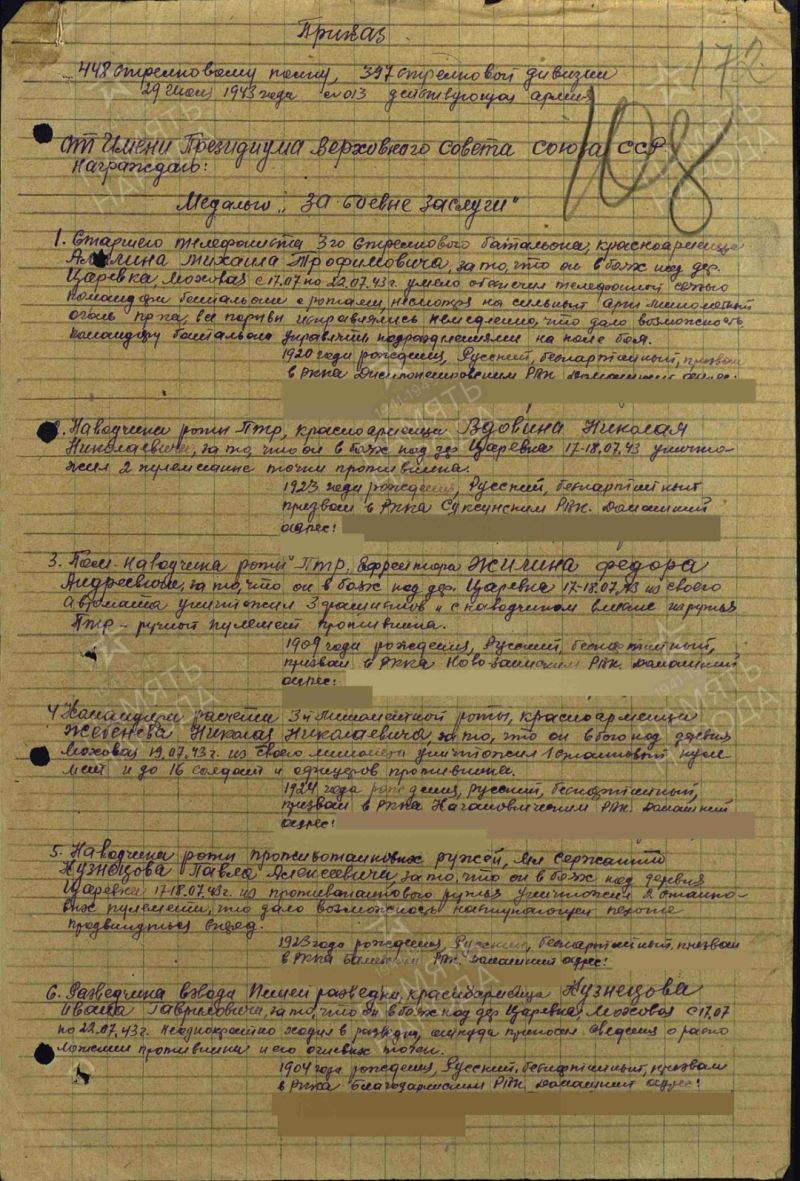 Приказ
172
448 стрелковому полку, 397 стрелковой дивизии
29 июля 1943 года № 013 действующая армия
108
От имени Президиума Верховного Совета Союза ССР
награждаю:
Медалью „За боевые заслуги"
1. Старшего телефониста 3го стрелкового батальона, красноармейца
Михаила Трофимовича, за то, что он в боях под дер.
Царевка, Моховая с 17.07 по 22.07.43г. умело обеспечил телефонной связью
командира батальона с ротами, несмотря на сильный арт. минометный
огонь пр-ка, все порывы исправлялись немедленно, что дало возможность
командиру батальона управлять подразделениями на поле боя.
1920 года рождения, Русский, беспартийный, призван
в РККА РВК. Домашний адрес:
2. Наводчика роты ПТР, красноармейца Вдовина Николая
Николаевича, за то, что он в боях под дер. Царевка 17-18.07.43 уничто-
жил 2 пулеметные точки противника.
1923 года рождения, Русский, беспартийный
призван в РККА Суксунским РВК. Домашний
адрес:
3. Пом. наводчика роты ПТР, Ефрейтора Жилина Федора
Андреевича, за то, что он в боях под дер. Царевка 17-18.07.43 из своего
автомата уничтожил 3 фашистов и с наводчиком вместе из ружья
ПТР - ручной пулемет противника.
1909 года рождения, Русский, беспартийный,
призван в РККА Ново-Заимским РВК. Домашний
адрес:
4. Командира расчета 3й минометной роты, красноармейца
Жебенева Николая Николаевича, за то, что он в бою под деревня
Моховая 19.07.43г. из своего миномета уничтожил 1 станковый пуле-
мет и до 16 солдат и офицеров противника.
1924 года рождения, Русский, беспартийный,
призван в РККА РВК. Домашний
адрес:
5. Наводчика роты противотанковых ружей, мл. сержанта
Кузнецова Павла Алексеевича, за то, что он в боях под деревня
Царевка 17-18.07.43г. из противотанкового ружья уничтожил 2 станко-
вых пулемета, что дало возможность наступающей пехоте
продвинуться вперед.
1923 года рождения, Русский, беспартийный, призван
в РККА РВК. Домашний адрес:
6. Разведчика взвода Пешей разведки, красноармейца Кузнецова
Ивана Гавриловича, за то, что он в боях под дер. Царевка, Моховая с 17.07
по 22.07.43г. неоднократно ходил в разведку, откуда приносил сведения о распо-
ложении противника и его огневых точек.
1904 года рождения, Русский, беспартийный, призван
в РККА РВК. Домашний адрес:
ПАМЯТЬ
НАРОДА